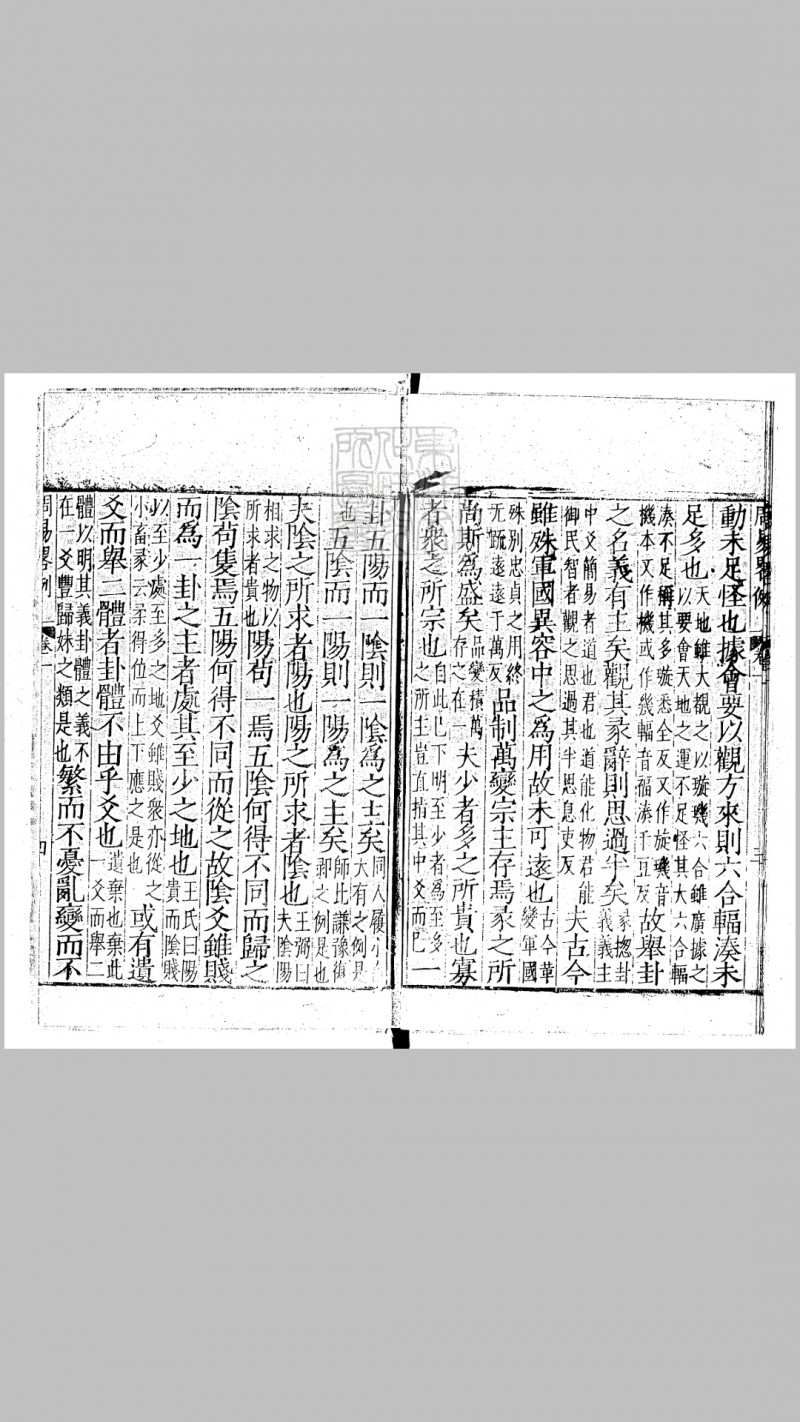 周易畧例 卷一 三
動未足怪也據會要以觀方來則六合輻湊未
足多也天地雖大覩之以璇璣六合雖廣據之
以要會天地之運不足怪其大六合輻
湊不足稱其多璇悉全反又作旋璣音
機本又作機或作幾輻音福湊千豆反故舉卦
之名義有主矣觀其彖辭則思過半矣彖揔卦
義義主
中爻簡易者道也君也道能化物君能
御民智者觀之思過其半思息吏反夫古今
雖殊軍國異容中之爲用故未可遠也古今革
變軍國
殊別忠貞之用終
无疏遠遠于萬反品制萬變宗主存焉彖之所
尚斯爲盛矣品變積萬
存之在一夫少者多之所貴也寡
者衆之所宗也自此已下明至少者爲至多
之所主豈直指其中爻而已一
卦五陽而一陰則一陰爲之主矣同人履小
大有之例是
也五陰而一陽則一陽爲之主矣師比謙豫復
剝之例是也
夫陰之所求者陽也陽之所求者陰也王弼曰
夫陰陽
相求之物以
所求者貴也陽苟一焉五陰何得不同而歸之
陰苟隻焉五陽何得不同而從之故陰爻雖賤
而爲一卦之主者處其至少之地也王氏曰陽
貴而陰賤
以至少處至多之地爻雖賤衆亦從之
小畜彖云柔得位而上下應之是也或有遺
爻而舉二體者卦體不由乎爻也遺棄也棄此
一爻而舉二
體以明其義卦體之義不
在一爻豐歸妹之類是也繁而不憂亂變而不
周易畧例 卷一 四